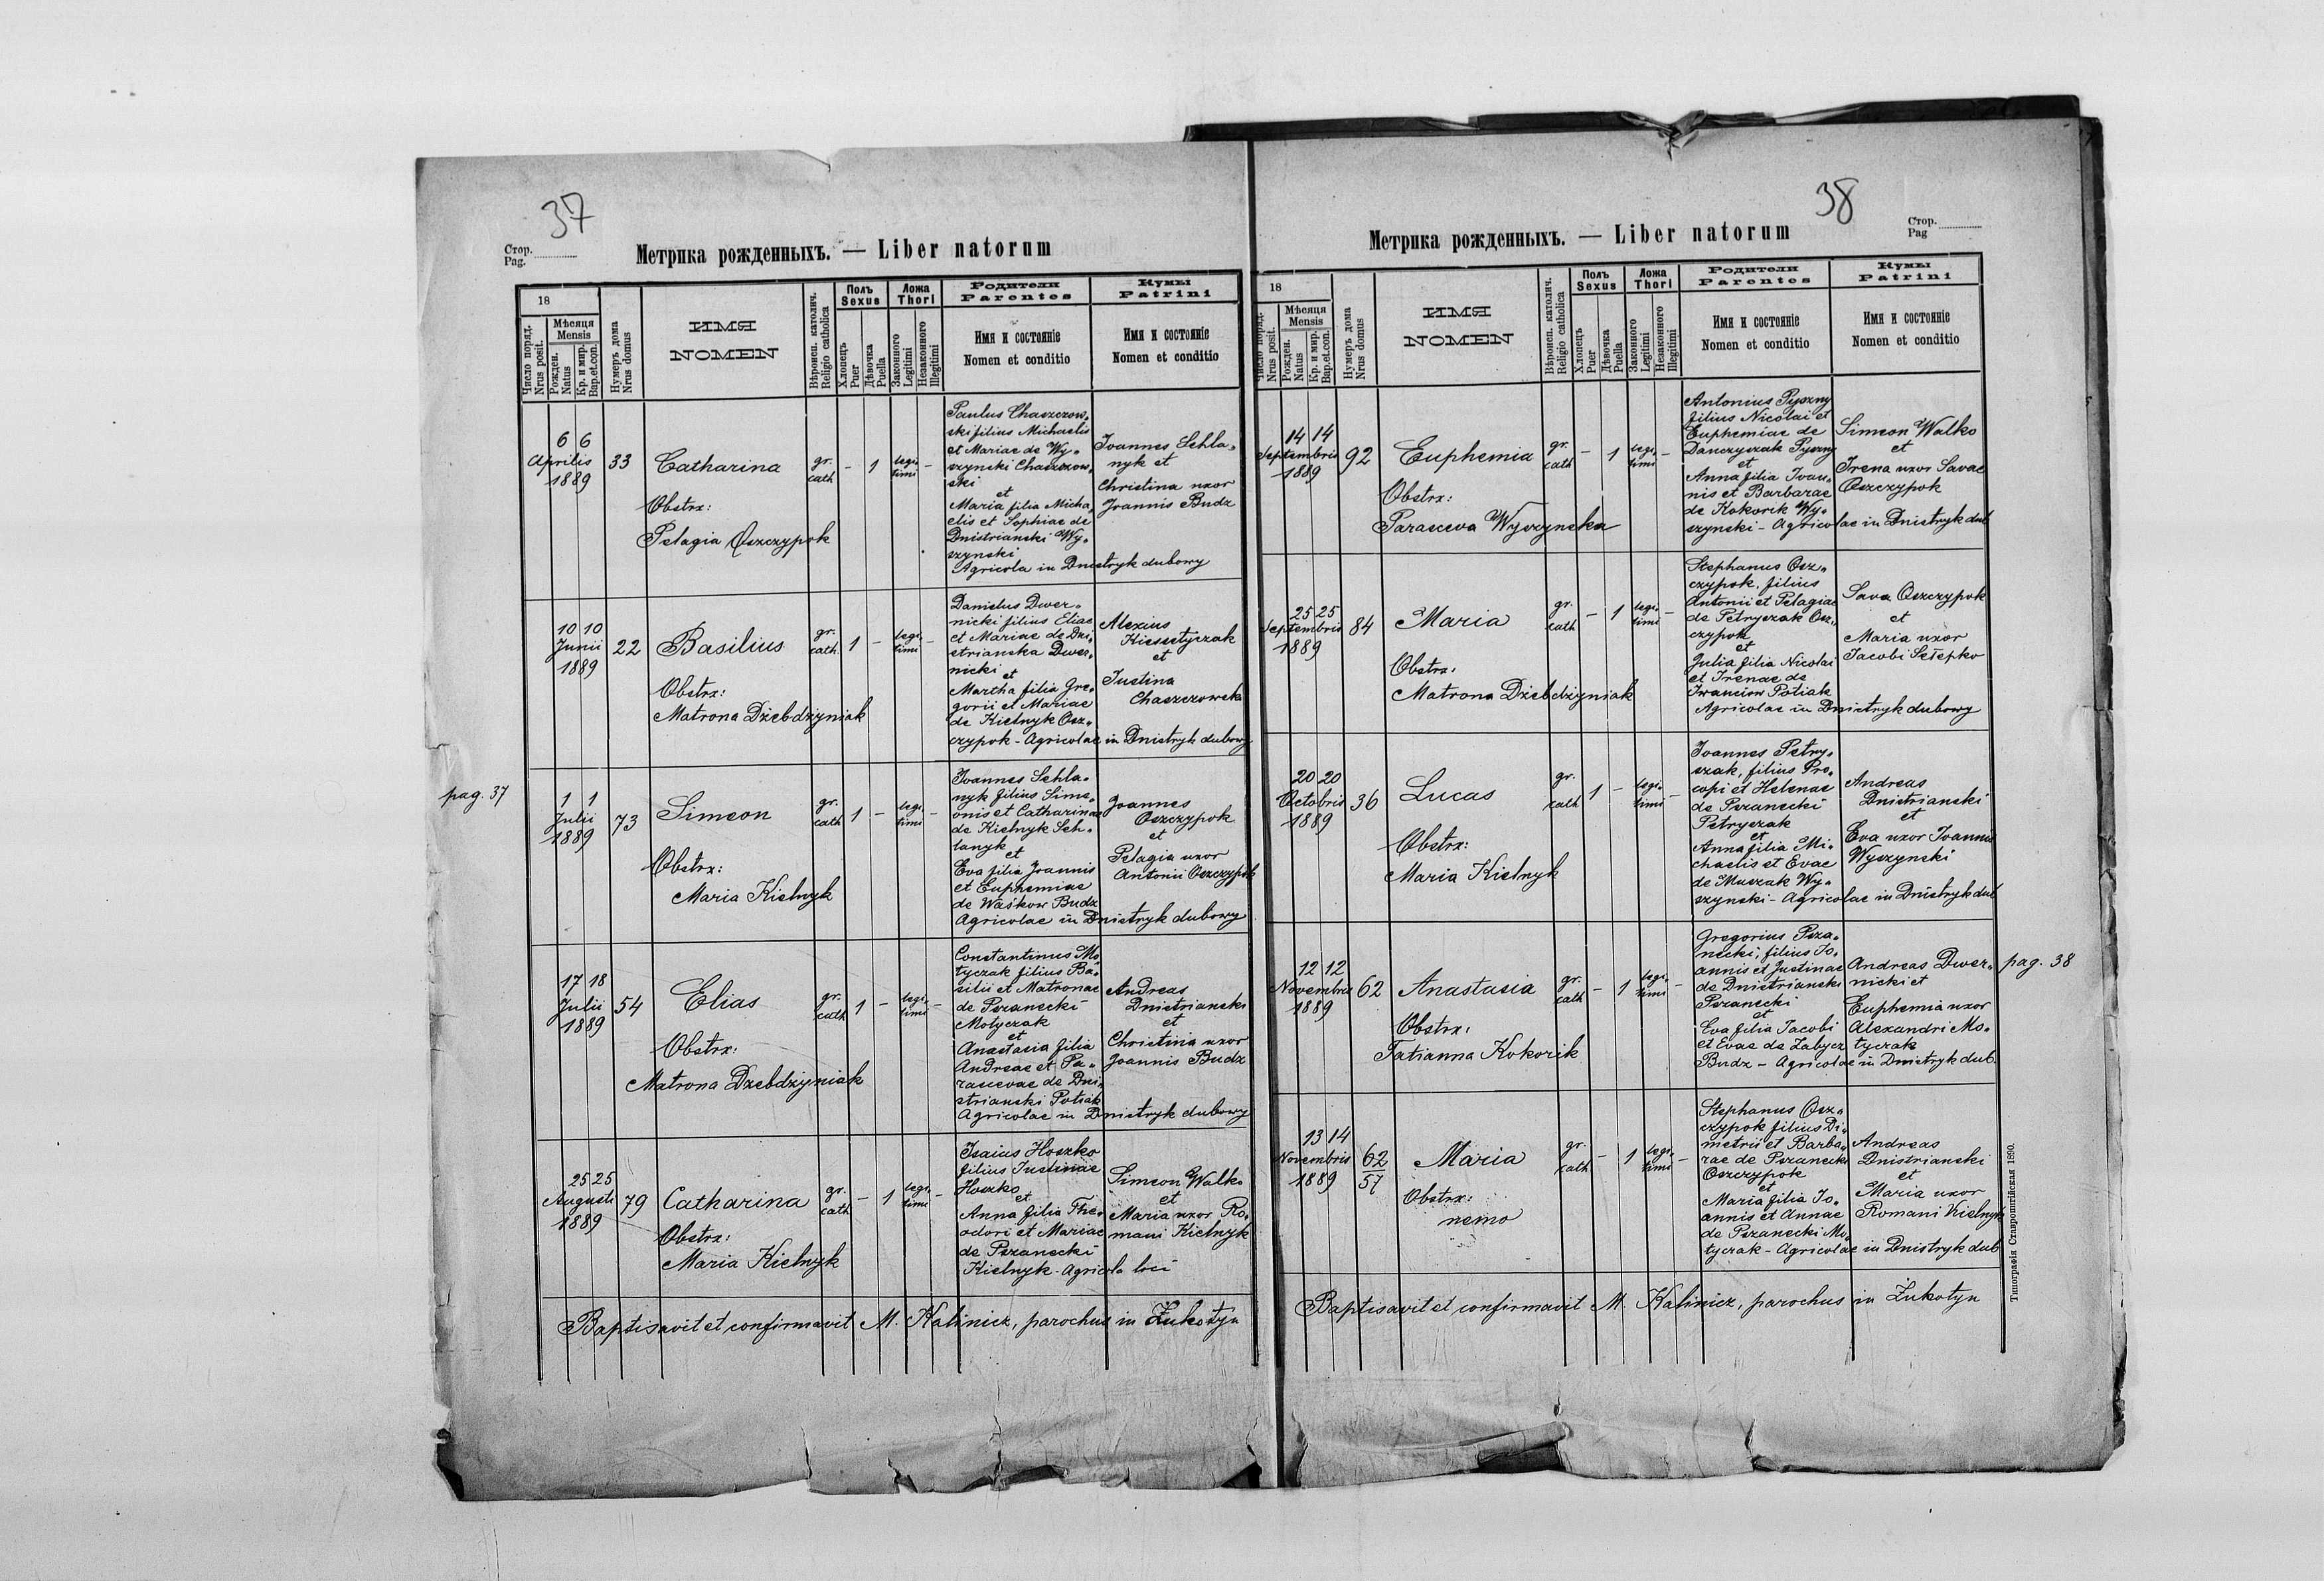 37
Стор.
Pag.
Метрика рожденныхъ. — Liber natorum
18
Число поряд.
Nrus posit.
Мѣсяця
Mensis
Рожден.
Natus
Кр. и мир.
Bap.et.con.
Нумеръ дома
Nrus domus
ИМЯ
NOMEN
Вѣроисп. католич.
Religio catholica
Полъ
Sexus
Хлопець
Puer
Дѣвочка
Puella
Ложа
Thori
Законного
Legitimi
Незаконного
Illegtimi
Родители
Parentes
Имя и состояніе
Nomen et conditio
Кумы
Patrini
Имя и состояніе
Nomen et conditio
6 6
Aprilis
1889
33
Catharina
Obstrx:
Pelagia Oszczypok
gr.
cath
-
1
legi-
timi
-
Paulus Chaszczow-
ski filius Michaelis
et Mariae de Wy-
szynski Chaszczow-
ski
et
Maria filia Micha
elis et Sophiae de
Dnistrianski Wy-
szynski
Agricola in Dnistryk dubowy
Ioannes Schla-
nyk et
Christina uxor
Joannis Budz
10 10
Junii
1889
22
Basilius
Obstrx:
Matrona Dżebdżyniak
gr.
cath
1
-
legi-
timi
-
Danielus Dwer-
nicki filius Eliae
et Mariae de Dni-
strianska Dwer-
nicki
et
Martha filia Gre-
gorii et Mariae
de Kielnyk Osz-
czypok - Agricolae in Dnistryk dubowy
Alexius
et
Iustina
Chaszczowska
pag. 37
1 1
Julii
1889
73
Simeon
Obstrx:
Maria Kielnyk
gr.
cath
1
-
legi-
timi
-
Ioannes Schla-
nyk filius Sime-
onis et Catharinae
de Kielnyk Sch-
lanyk
et
Eva filia Joannis
et Euphemiae
de Waśkow Budz
Agricolae in Dnistryk dubowy
Joannes
Oszczypok
et
Pelagia uxor
Antonii Oszczypok
17 18
Julii
1889
54
Elias
Obstrx:
Matrona Dzebdżyniak
gr.
cath
1
-
legi-
timi
-
Constantinus Mo-
tyczak filius Ba-
silii et Matronae
de Pszanecki
Motyczak
et
Anastasia filia
Andreae et Pa-
rascevae de Dni-
strianski Potiak
Agricolae in Dnistryk dubowy
Andreas
Dnistrianski
et
Christina uxor
Joannis Budz
25 25
Augusti
1889
79
Catharina
Obstrx:
Maria Kielnyk
gr.
cath
-
1
legi-
timi
-
Isaius Hoszko
filius Iustinae
Hoszko
et
Anna filia The-
odori et Mariae
de Pszanecki
Kielnyk - Agricola loci
Simeon Walko
et
Maria uxor Ro-
mani Kielnyk
Baptisavit et confirmavit M. Kalinicz, parochus in Żukotyn
38
Стор.
Pag
Метрика рожденныхъ. — Liber natorum
18
Число поряд.
Nrus posit.
Мѣсяця
Mensis
Рожден.
Natus
Кр. и мир.
Bap.et.con.
Нумеръ дома
Nrus domus
ИМЯ
NOMEN
Вѣроисп. католич.
Religio catholica
Полъ
Sexus
Хлопець
Puer
Дѣвочка
Puella
Ложа
Thori
Законного
Legitimi
Незаконного
Illegtimi
Родители
Parentes
Имя и состояніе
Nomen et conditio
Кумы
Patrini
Имя и состояніе
Nomen et conditio
14 14
Septembris
1889
92
Euphemia
Obstrx:
Parasceva Wyszynska
gr.
cath
-
1
legi-
timi
-
Antonius Pyszny
filius Nicolai et
Euphemiae de
Danczyszak Pyszny
et
Anna filia Ioan-
nis et Barbarae
de Kokorik Wy-
szynski - Agricolae in Dnistryk dub
Simeon Walko
et
Irena uxor Savae
Oszczypok
25 25
Septembris
1889
84
Maria
Obstrx:
Matrona Dżebdżyniak
gr.
cath
-
1
legi-
timi
-
Stephanus Osz-
czypok, filius
Antonii et Pelagiae
de Petryszak Osz-
czypok
et
Julia filia Nicolai
et Irenae de
Iwanciow Potiak
Agricolae in Dnistryk dubowy
Sava Oszczypok
et
Maria uxor
Iacobi
20 20
Octobris
1889
36
Lucas
Obstrx:
Maria Kielnyk
gr.
cath
1
-
legi-
timi
-
Ioannes Petry-
szak, filius Pro-
copi et Helenae
de Pszanecki
Petryszak
et
Anna filia Mi-
chaelis et Evae
de Muszak Wy-
szynski - Agricolae in Dnistryk dub
Andreas
Dnistrianski
et
Eva uxor Ioannis
Wyszynski
12 12
Novembris
1889
62
Anastasia
Obstrx:
Tatianna Kokorik
gr.
cath
-
1
legi-
timi
-
Gregorius Psza-
necki, filius Io-
annis et Justinae
de Dnistrianski
Pszanecki
et
Eva filia Iacobi
et Evae de Zabycz
Budz - Agricolae in Dnistryk dub.
Andreas Dwer-
nicki et
Euphemia uxor
Alexandri Mo-
tyczak
pag. 38
13 14
Novembris
1889
62
57
Maria
Obstrx:
nemo
gr.
cath
-
1
legi-
timi
-
Stephanus Osz-
czypok filius Di-
metrii et Barba-
rae de Pszanecki
Oszczypok
et
Maria filia Io-
annis et Annae
de Pszanecki Mo-
tyczak - Agricolae in Dnistryk dub
Andreas
Dnistrianski
et
Maria uxor
Romani Kielnyk
Baptisavit et confirmavit M. Kalinicz, parochus in Żukotyn
Типографія Ставропигійская 1890.